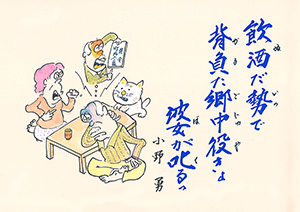 飲酒だ勢で
背負た郷中役きょ
彼女が叱るっ
小野 勇